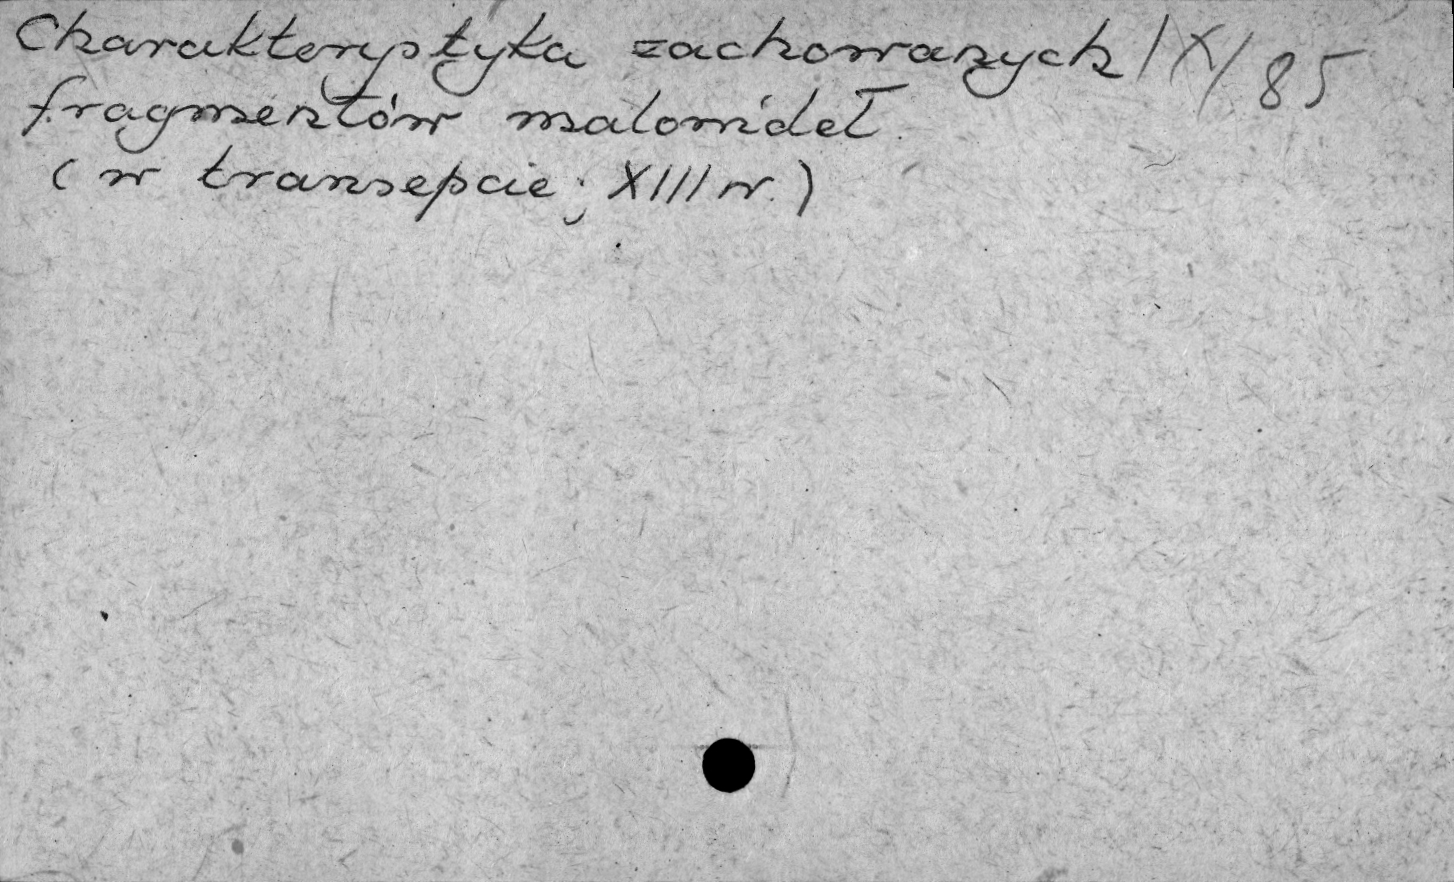 Charakterystyka zachowanych IX/85
fragmentów malowideł.
(w transepcie; XIII w.)